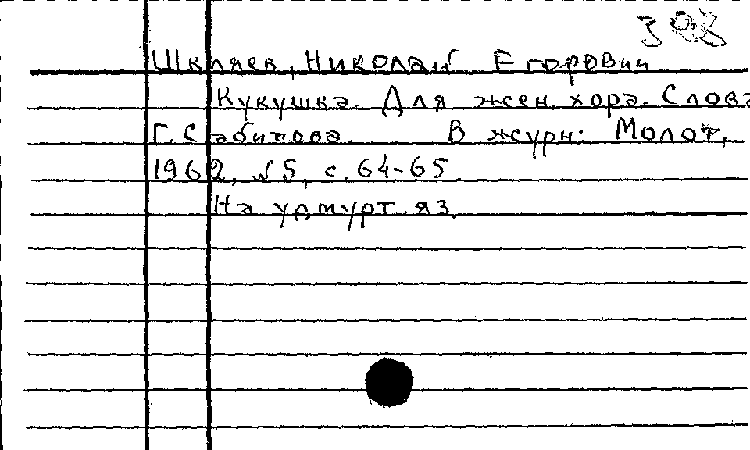 398
Шкляев, Николай Егорович
Кукушка. Для жен. хора. Слова
Г. Сабитова. В журн: Молот,
1962, №5, с. 64-65.
На удмурт. яз.